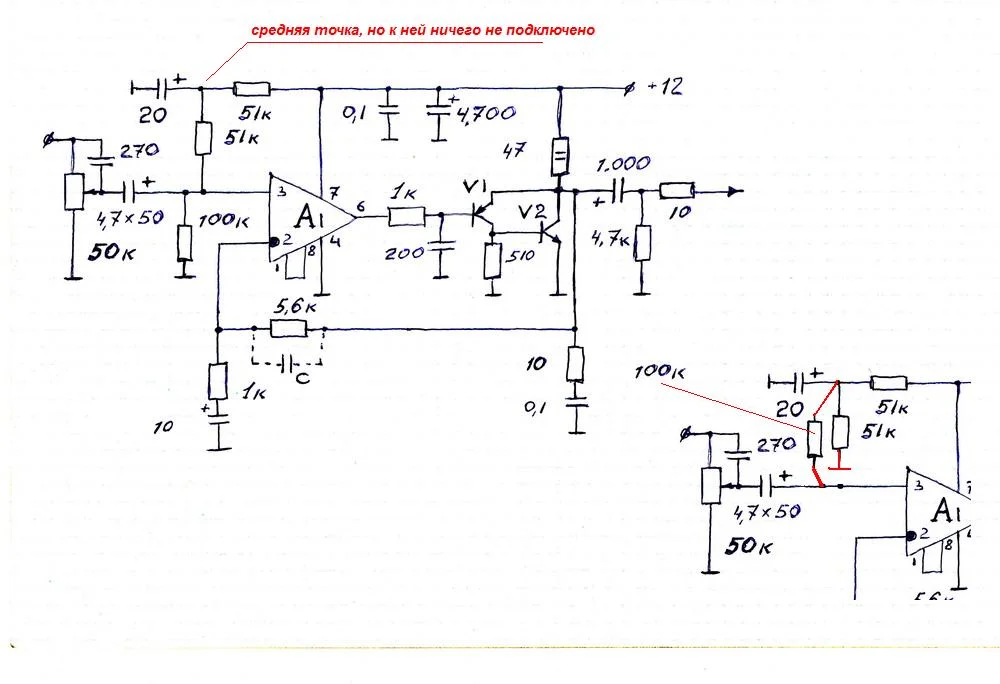 средняя точка, но к ней ничего не подключено
+
20
51к
51к
+12
0,1
+
4,700
270
+
4,7×50
50к
100к
3
2
A1
7
6
4
1
8
1к
200
V1
V2
510
47
1.000
+
4,7к
10
5,6к
C
1к
+
10
10
0,1
100к
+
20
51к
51к
270
+
4,7×50
50к
3
2
A1
1
8
5,6к